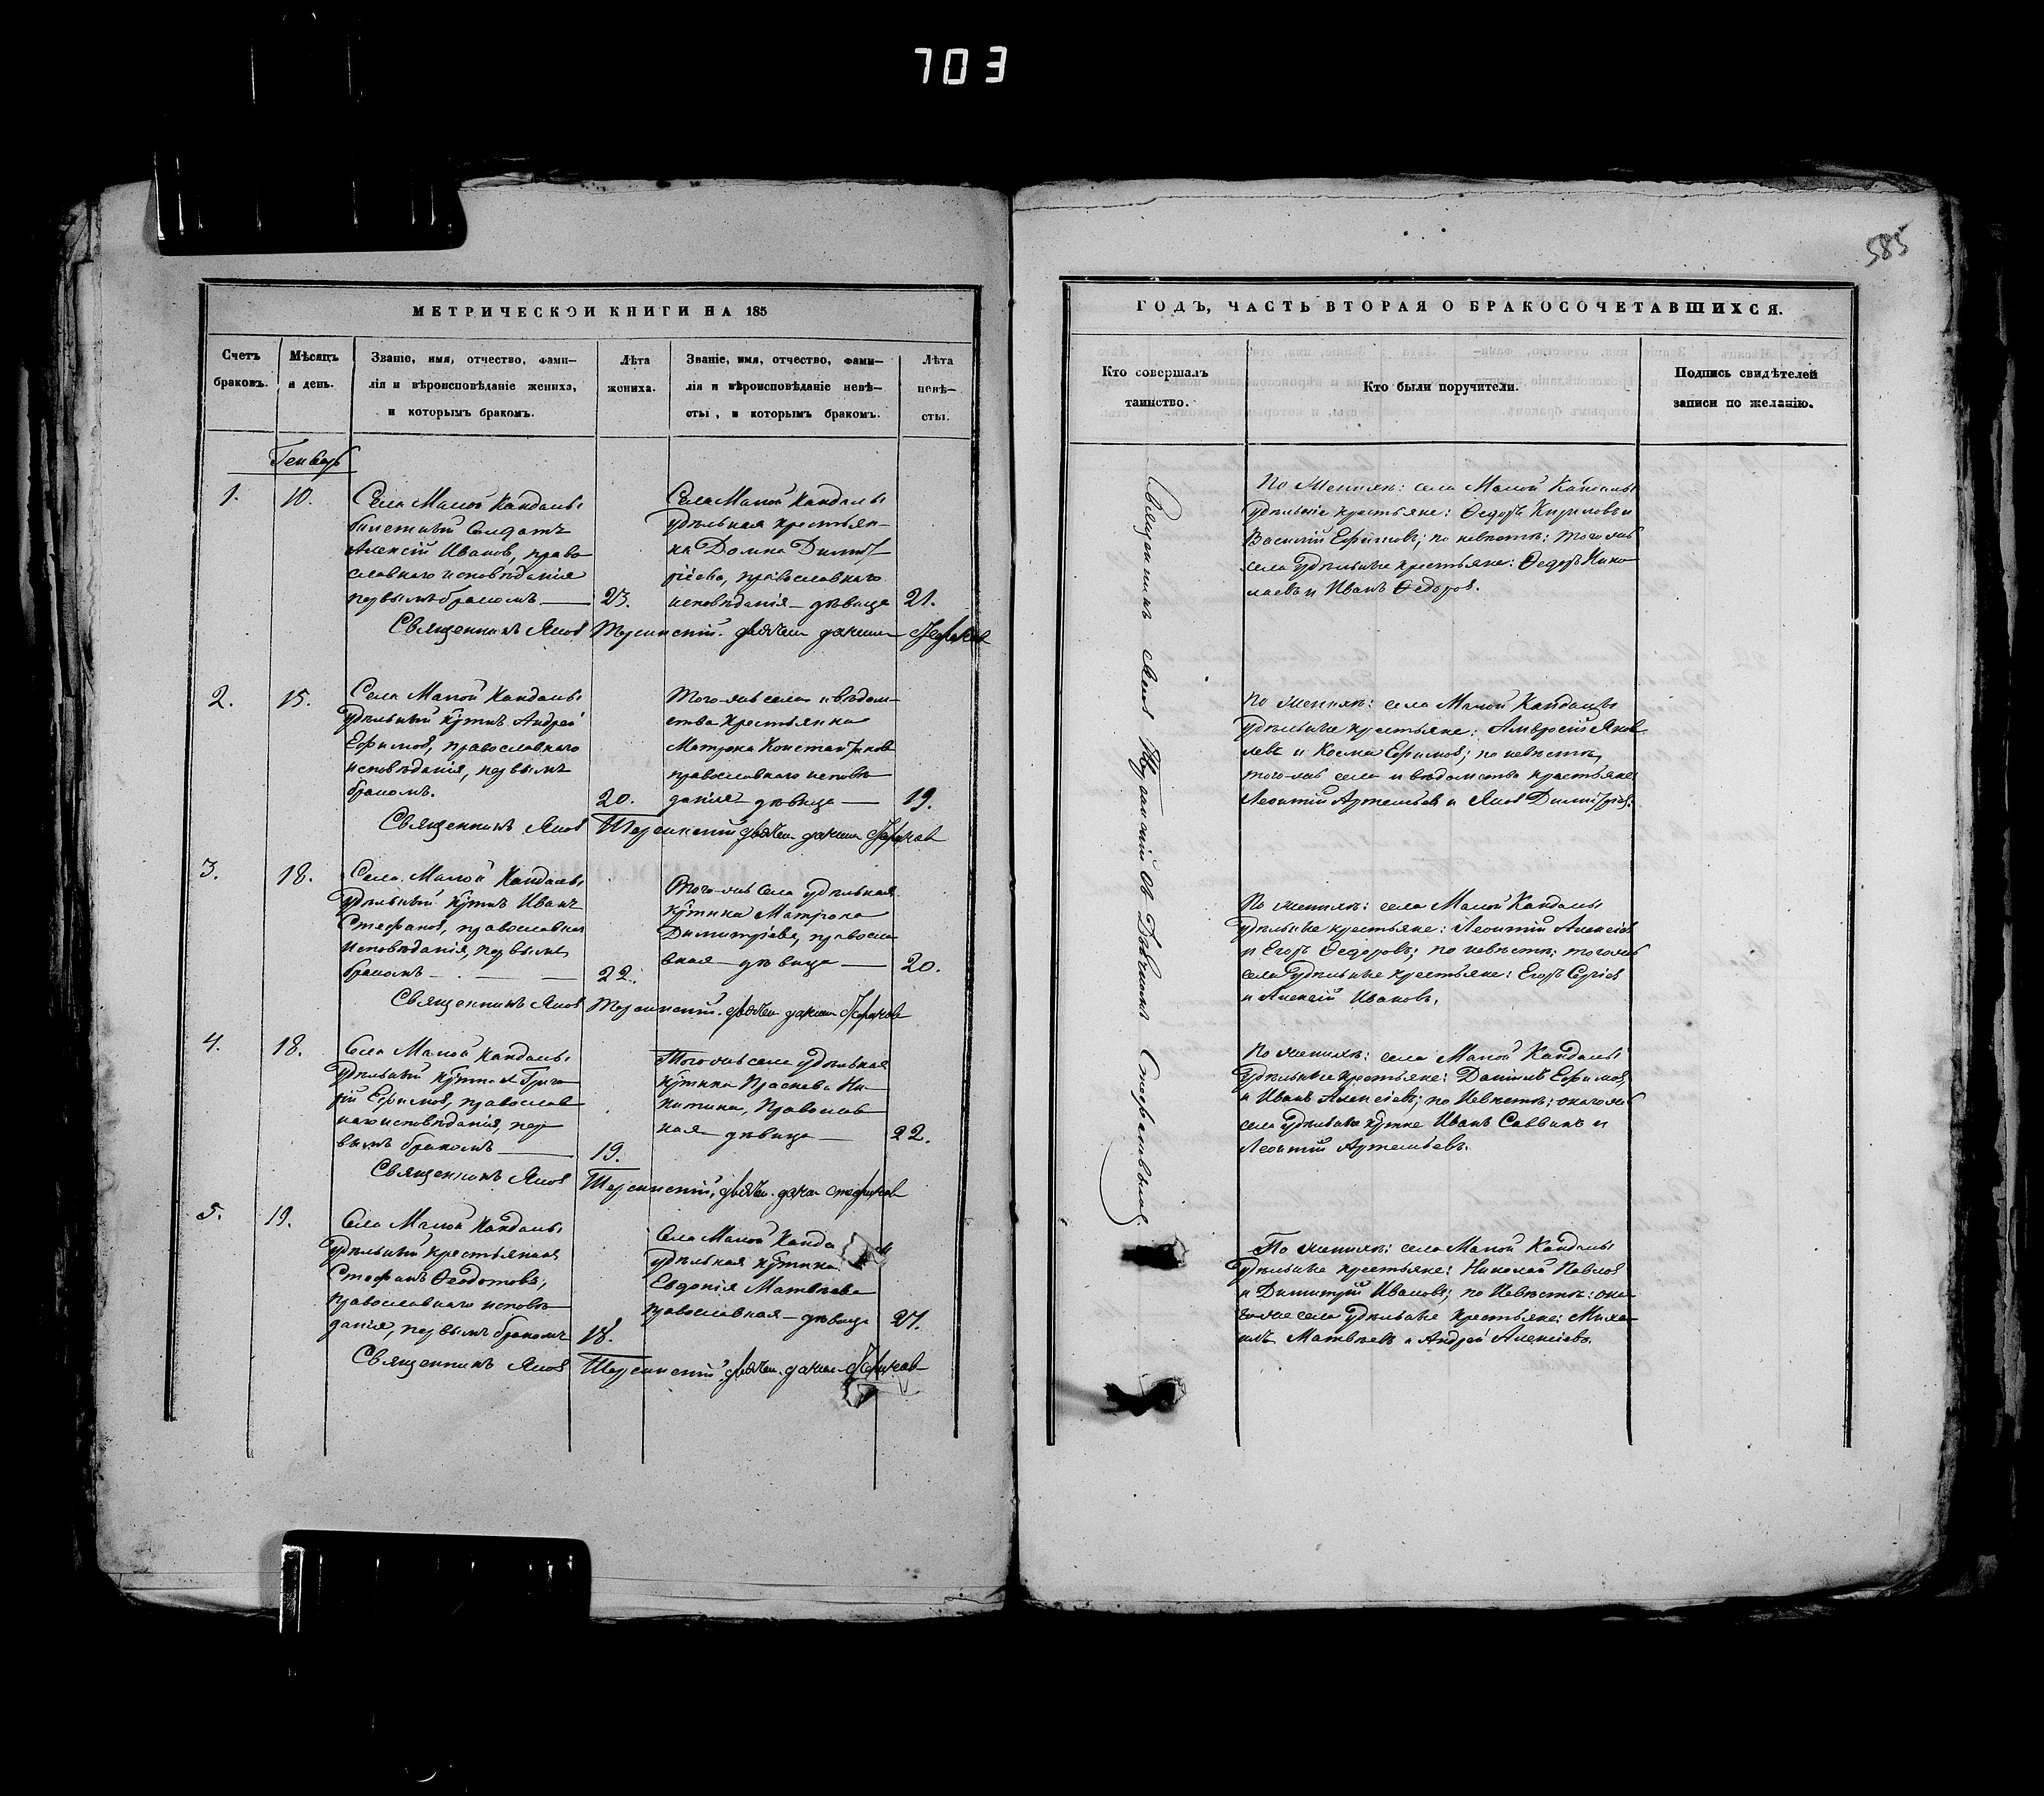 703
585
МЕТРИЧЕСКОЙ КНИГИ НА 185
Счетъ браковъ.
Мѣсяцъ и день.
Званіе, имя, отчество, фами-
лія и вѣроисповѣданіе жениха,
и которымъ бракомъ.
Лѣта жениха.
Званіе, имя, отчество, фами-
лія и вѣроисповѣданіе невѣ-
сты, и которымъ бракомъ.
Лѣта невѣ-
сты.
Генварь
1.
10.
Села Малой Кандалы
билетный Солдатъ
Алексій Иванов, право
славнаго исповѣданія
первымъ бракомъ
23.
Села Малой Кандалы
удѣльная крестьян-
ка Домна Димит
ріева, православнаго
исповѣданія – дѣвица
21.
Священникъ Яков
2.
15.
Села Малой Кандалы
удѣльный Андрей
Ефимов, православнаго
исповѣданія, первымъ
бракомъ.
20.
Того же села и вѣдом-
ства крестьянка
Матрона Константинов
православнаго исповѣ
данія – дѣвица
19.
Священникъ Яков
3.
18.
Села Малой Кандалы
удѣльный Иванъ
Стефанов, православнаго
исповѣданія, первымъ
бракомъ
22.
Того же села удѣльная
Матрона
Димитріева, правосла
вная – дѣвица
20.
Священникъ Яков
4.
18.
Села Малой Кандалы
удѣльный Григо
рій Ефимов, православ
наго исповѣданія, пер
вымъ бракомъ
19.
Того же села удѣльная
Праскева Ни-
китина, Православ
ная – дѣвица
22.
Священникъ Яков
5.
19.
Села Малой Кандалы
удѣльный крестьянинъ
Стефанъ Ѳеодотовъ,
православнаго исповѣ
данія, первымъ бракомъ
18.
Села Малой Канда
удѣльная
Евдокія Матвѣева
православная – дѣвица
27.
Священникъ Яков
ГОДЪ, ЧАСТЬ ВТОРАЯ О БРАКОСОЧЕТАВШИХСЯ.
Кто совершалъ
таинство.
Кто были поручители.
Подпись свидѣтелей
записи по желанію.
Священникъ Яков
По женихѣ: села Малой Кандалы
удѣльные крестьяне: Ѳедоръ Кириловъ и
Василій Ефимовъ; по невѣстѣ: того же
села удѣльные крестьяне: Ѳедоръ Нико
лаевъ и Иванъ Ѳедоров.
По женихѣ: села Малой Кандалы
удѣльные крестьяне: Амвросій Яков
левъ и Косма Ефимов; по невѣстѣ,
того же села и вѣдомства крестьяне
Леонтій Артемьев и Яков Димитріев.
По женихѣ: села Малой Кандалы
удѣльные крестьяне: Леонтій Алексіев
и Егоръ Ѳедоровъ; по невѣстѣ: того же
села удѣльные крестьяне: Егоръ Сергіев
и Алексій Ивановъ.
По женихѣ: села Малой Кандалы
удѣльные крестьяне: Даніилъ Ефимов,
и Иванъ Алексіевъ; по невѣстѣ: онаго же
села удѣльные Иванъ Саввинъ и
Леонтій Артемьевъ.
По женихѣ: села Малой Кандалы
удѣльные крестьяне: Николай Павлов
и Димитрій Ивановъ; по невѣстѣ: она
го же села удѣльные крестьяне: Миха
илъ Матвѣевъ и Андрей Алексіевъ.